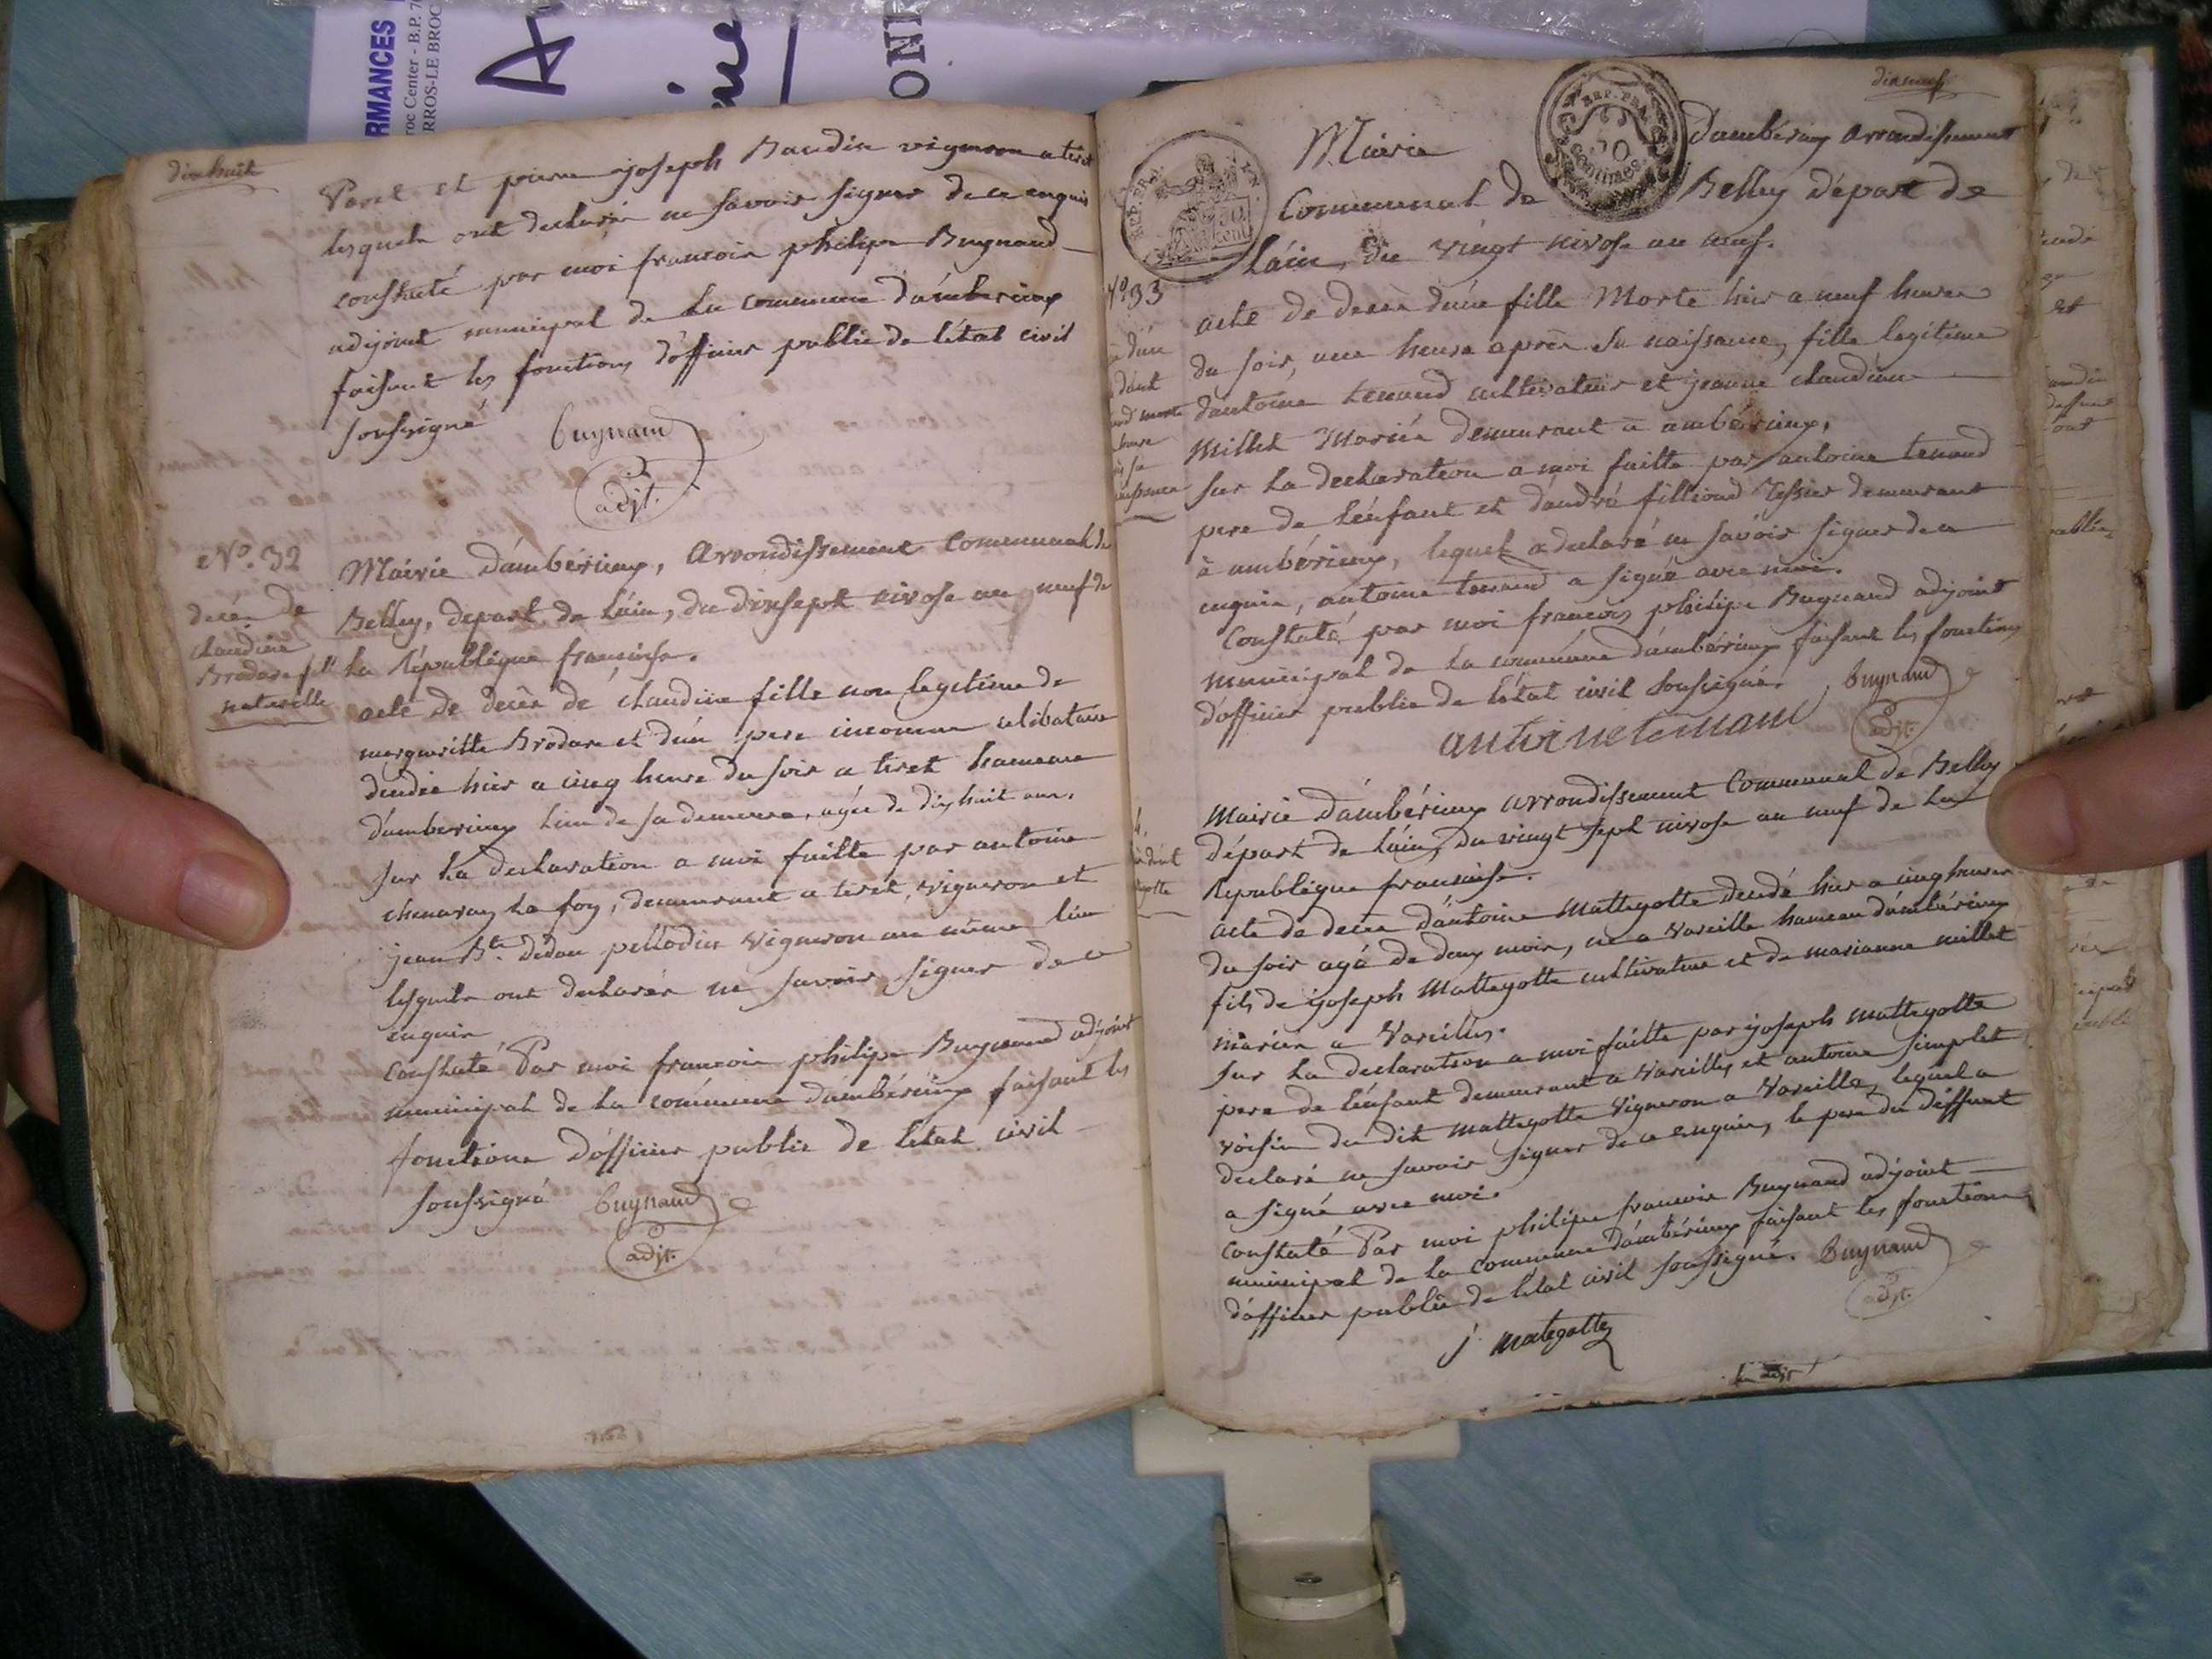 RMANCES
roc Center - B.P. 7
RROS-LE BROC
ONI
dix huit
Paret et pierre joseph Baudin vigneron a tiret
lesquels ont declarés ne savoir signer de ce enquis
constaté par moi francois philipe Buynand
adjoint municipal de la commune d'ambérieux
faisant les fonctions d'officier public de l'état civil
soussigné Buynand
adjt.
N°. 32
decès de
claudine
Brodare fille
naturelle
Mairie d'ambérieux, arrondissement communal de
Belley, depart. de l'ain, du dix sept nivose an neuf de
la République francaise.
acte de decès de claudine fille non legitime de
margueritte Brodare et d'un pere inconnu celibataire
decedée hier a cinq heure du soir a tiret hameau
d'amberieux lieu de sa demeure, agée de dix huit ans.
sur la declaration a moi faitte par antoine
chenavaz la foy, demeurant a tiret, vigneron et
jean Bte. Dedon pellodin vigneron au même lieu
lesquels ont declarés ne savoir signer de ce
enquis
constaté Par moi francois philipe Buynand adjoint
municipal de la commune d'ambérieux faisant les
fonctions d'officier public de l'état civil
soussigné Buynand
adjt.
dix neuf
REP. FRA.
50
centimes
Mairie d'ambérieux arrondissement
Communal de Belley départ de
l'ain, du vingt nivose an neuf.
N° 33
acte de decès d'une fille Morte hier a neuf heures
du soir, une heure après sa naissance, fille legitime
d'antoine tenand cultivateur et jeanne claudine
Millet Mariés demeurant a ambérieux,
sur la declaration a moi faitte par antoine tenand
pere de l'enfant et d'andré filliond tessier demeurant
à ambérieux, lequel a declaré ne savoir signer de ce
enquis, antoine tenand a signé avec moi.
Constaté par moi francois philipe Buynand adjoint
municipal de la commune d'ambérieux faisant les fonctions
d'officier public de l'état civil soussigné. Buynand
adjt.
antoine tenand
Mairie d'ambérieux arrondissement Communal de Belley
départ de l'ain, du vingt sept nivose an neuf de la
Republique francaise.
acte de decès d'antoine Mattegotte decedé hier a cinq heures
du soir agé de deux mois, né a Vareille hameau d'ambérieux
fils de joseph Mattegotte cultivateur et de marianne millet
mariés a Vareilles.
sur la declaration a moi faitte par joseph mattegotte
pere de l'enfant demeurant a Vareilles et antoine simplet
voisin du dit mattegotte vigneron a Vareilles, lequel a
declaré ne savoir signer de ce enquis, le pere du deffunt
a signé avec moi.
Constaté Par moi philipe francois Buynand adjoint
municipal de la commune d'ambérieux faisant les fonctions
d'officier public de l'état civil soussigné. Buynand
adjt.
j. mategotte